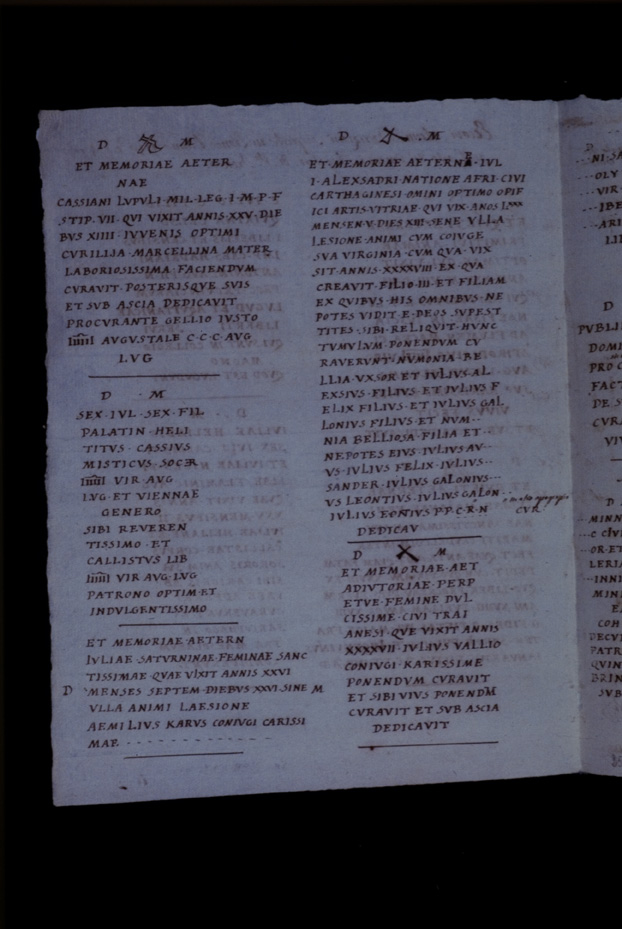 D M
ET MEMORIAE AETER
NAE
CASSIANI LVPVLI·MIL·LEG·I·M·P·F
STIP·VII·QVI VIXIT ANNIS·XXV·DIE
BVS XIIII·IVVENIS OPTIMI
CVRILIIA·MARCELLINA MATER
LABORIOSISSIMA FACIENDVM
CVRAVIT·POSTERISQVE SVIS
ET SVB ASCIA DEDICAVIT
PROCVRANTE GELLIO IVSTO
IIIIII AVGVSTALE C·C·C·AVG
LVG
D · M
SEX·IVL·SEX·FIL
PALATIN·HELI
TITVS·CASSIVS
MISTICVS SOCER
IIIIII VIR·AVG
LVG·ET VIENNAE
GENERO
SIBI REVEREN
TISSIMO·ET
CALLISTVS LIB
IIIIII VIR AVG·LVG
PATRONO OPTIM·ET
INDVLGENTISSIMO
ET MEMORIAE·AETERN
IVLIAE SATVRNINAE FEMINAE SANC
TISSIMAE·QVAE VIXIT ANNIS XXVI
D MENSES SEPTEM·DIEBVS XXVI·SINE M
VLLA ANIMI LAESIONE
AEMILIVS KARVS CONIVGI CARISSI
MAE
D · M
ET·MEMORIAE AETERNAE·IVL
I·ALEXSADRI·NATIONE AFRI·CIVI
CARTHAGINESI·OMINI OPTIMO OPIF
ICI ARTIS·VITRIAE·QVI VIX·ANOS LXXX
MENSEN·V·DIES XIII·SENE VLLA
LESIONE·ANIMI CVM COIVGE
SVA VIRGINIA·CVM QVA·VIX
SIT·ANNIS·XXXXVIII·EX·QVA
CREAVIT·FILIO·III·ET FILIAM
EX QVIBVS·HIS OMNIBVS·NE
POTES VIDIT E·DEOS SVPEST
TITES·SIBI·RELIQVIT·HVNC
TVMVLVM·PONENDVM CV
RAVERVNT·NVMONIA·BE
LLIA·VXSOR·ET IVLIVS·AL
EXSIVS·FILIVS·ET IVLIVS F
ELIX FILIVS·ET IVLIVS GAL
LONIVS FILIVS·ET NVM
NIA BELLIOSA·FILIA ET
NEPOTES EIVS·IVLIVS AV
VS·IVLIVS FELIX·IVLIVS
SANDER·IVLIVS GALONIVS
VS LEONTIVS·IVLIVS GALON
IVLIVS EONIVS P·P·C·R·N CVR
DEDICAV
D M
ET MEMORIAE·AET
ADIVTORIAE·PERP
ETVE·FEMINE DVL
CISSIME·CIVI TRAI
ANESI·QVE VIXIT ANNIS
XXXXVII·IVLIVS VALLIO
CONIVGI KARISSIME
PONENDVM CVRAVIT
ET SIBI VIVS PONENDM
CVRAVIT ET SVB ASCIA
DEDICAVIT